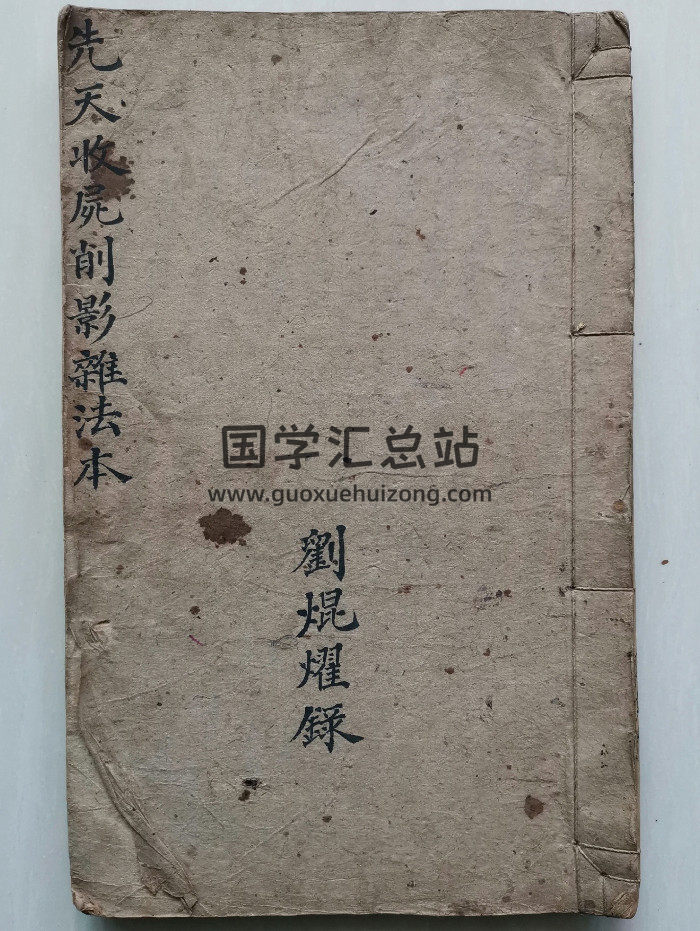 先天收屍削影雜法本
国学汇总站
www.guoxuehuizong.com
劉焜燿錄